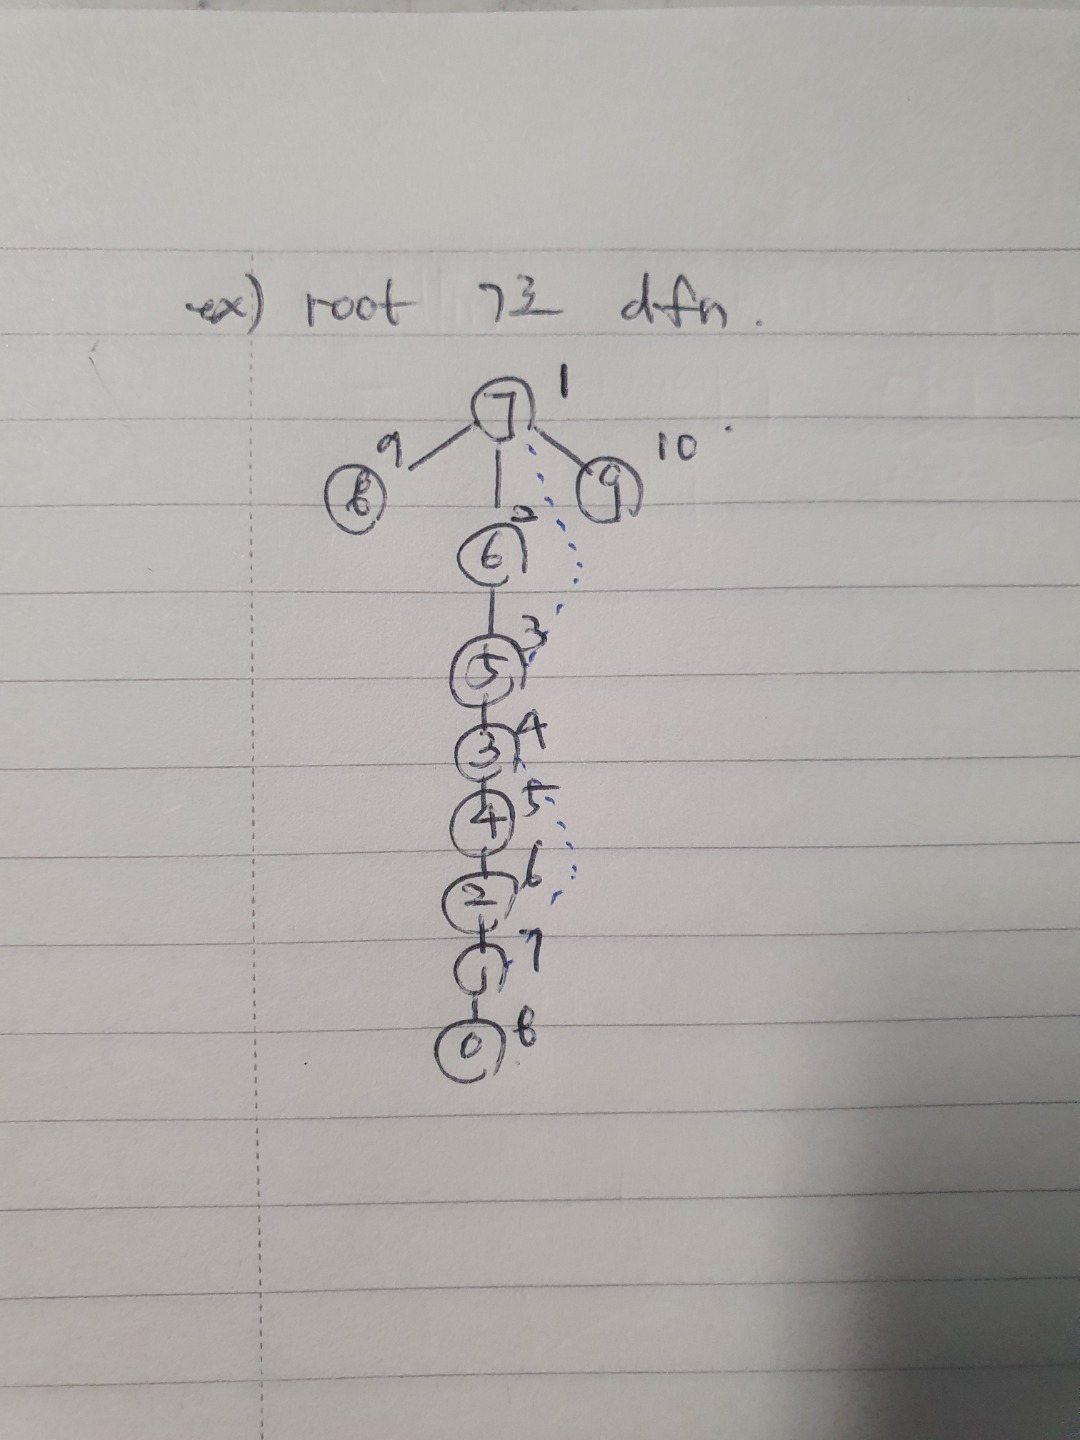 ex) root 7로 dfn.
7 1
9 10
8 9
6 2
5 3
3 4
4 5
2 6
1 7
0 8